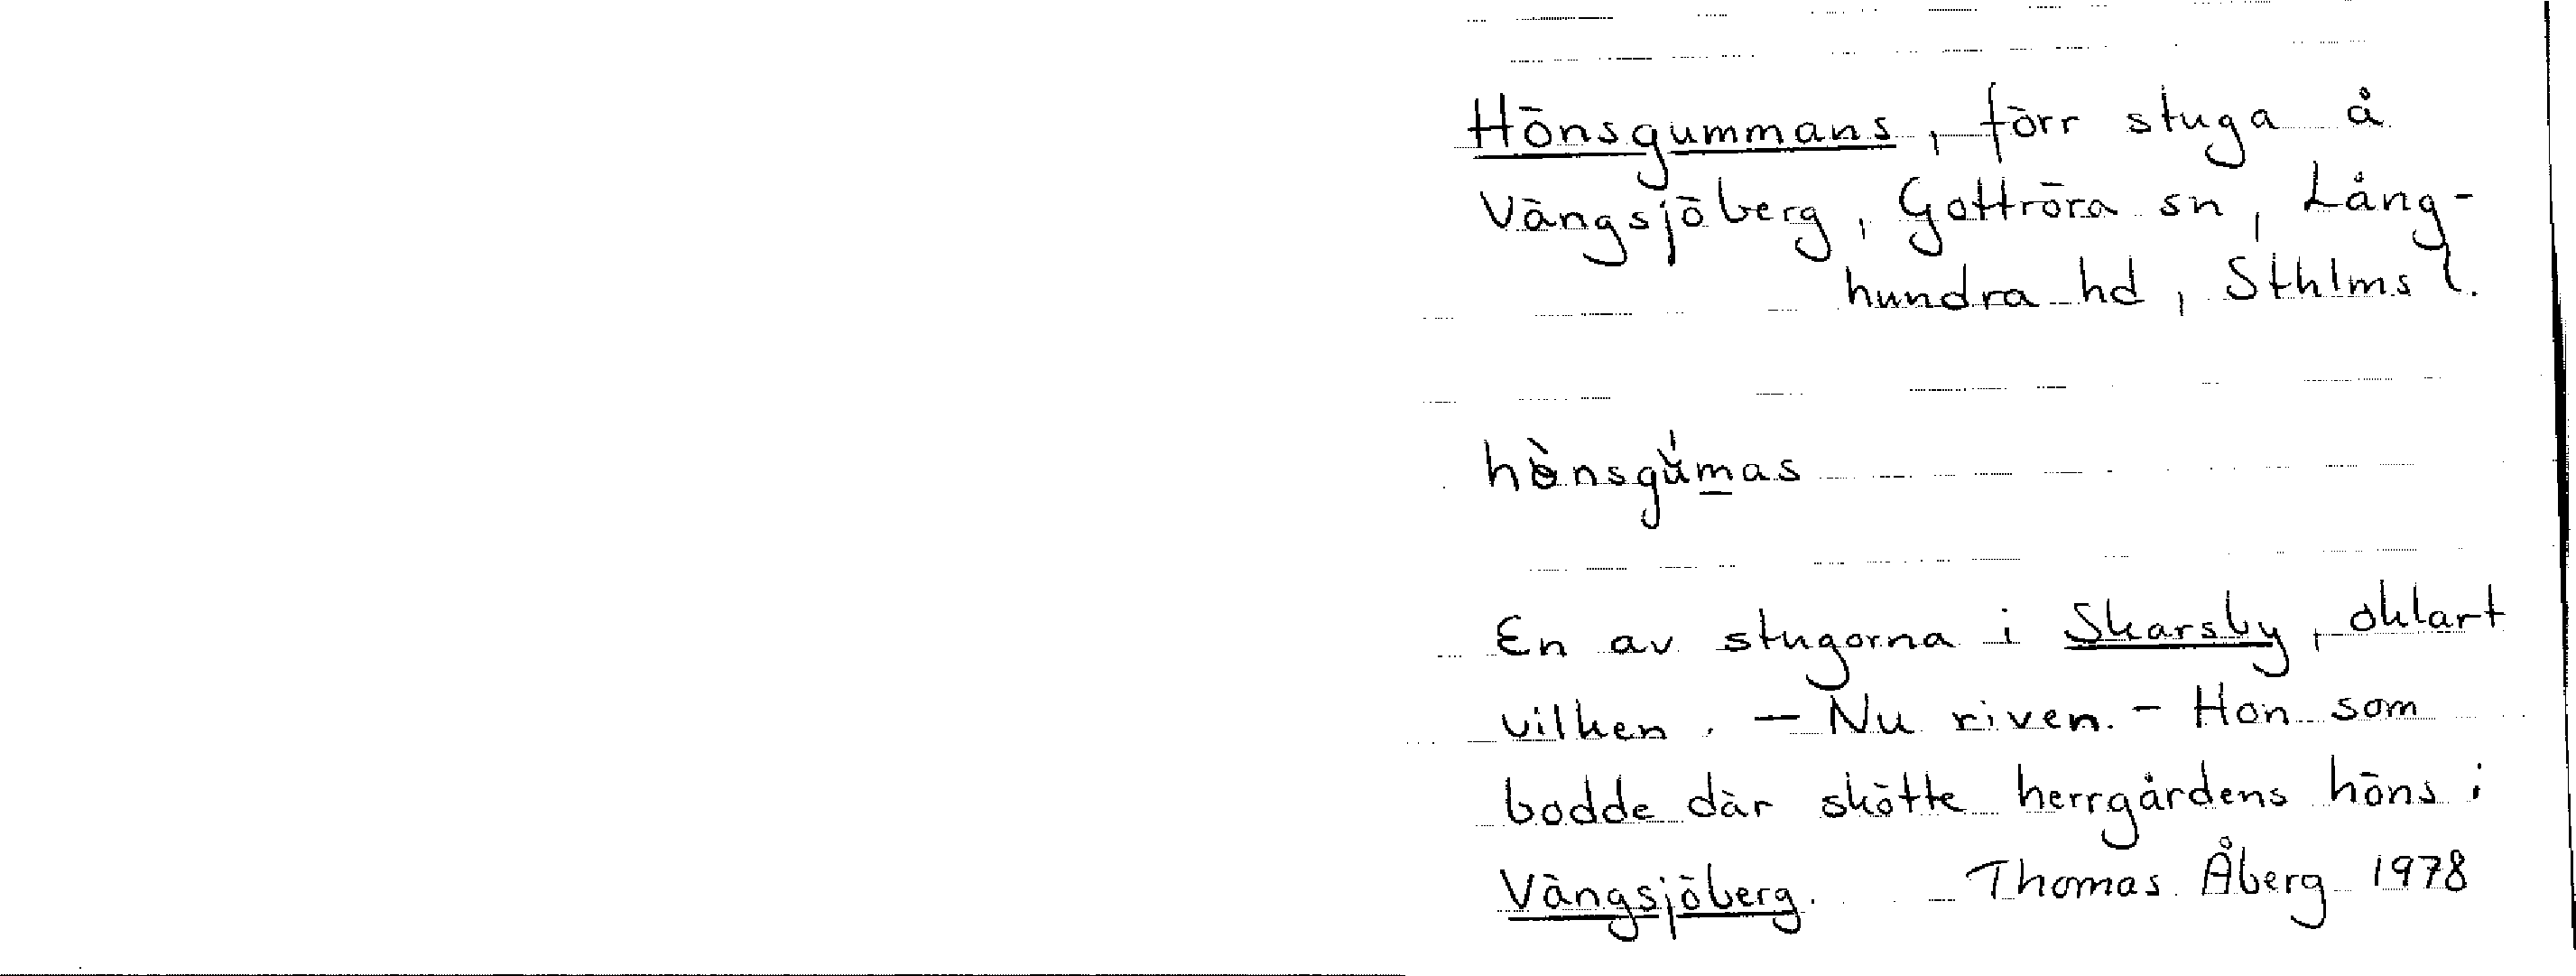 Hönsgummans, förr stuga å
Vängsjöberg, Gottröra sn, Lång-
hundra hd, Sthlms l.
hö̀nsgúmas
En av stugorna i Skarsby, oklart
vilken. – Nu riven. – Hon som
bodde där skötte herrgårdens höns i
Vängsjöberg. Thomas Åberg 1978